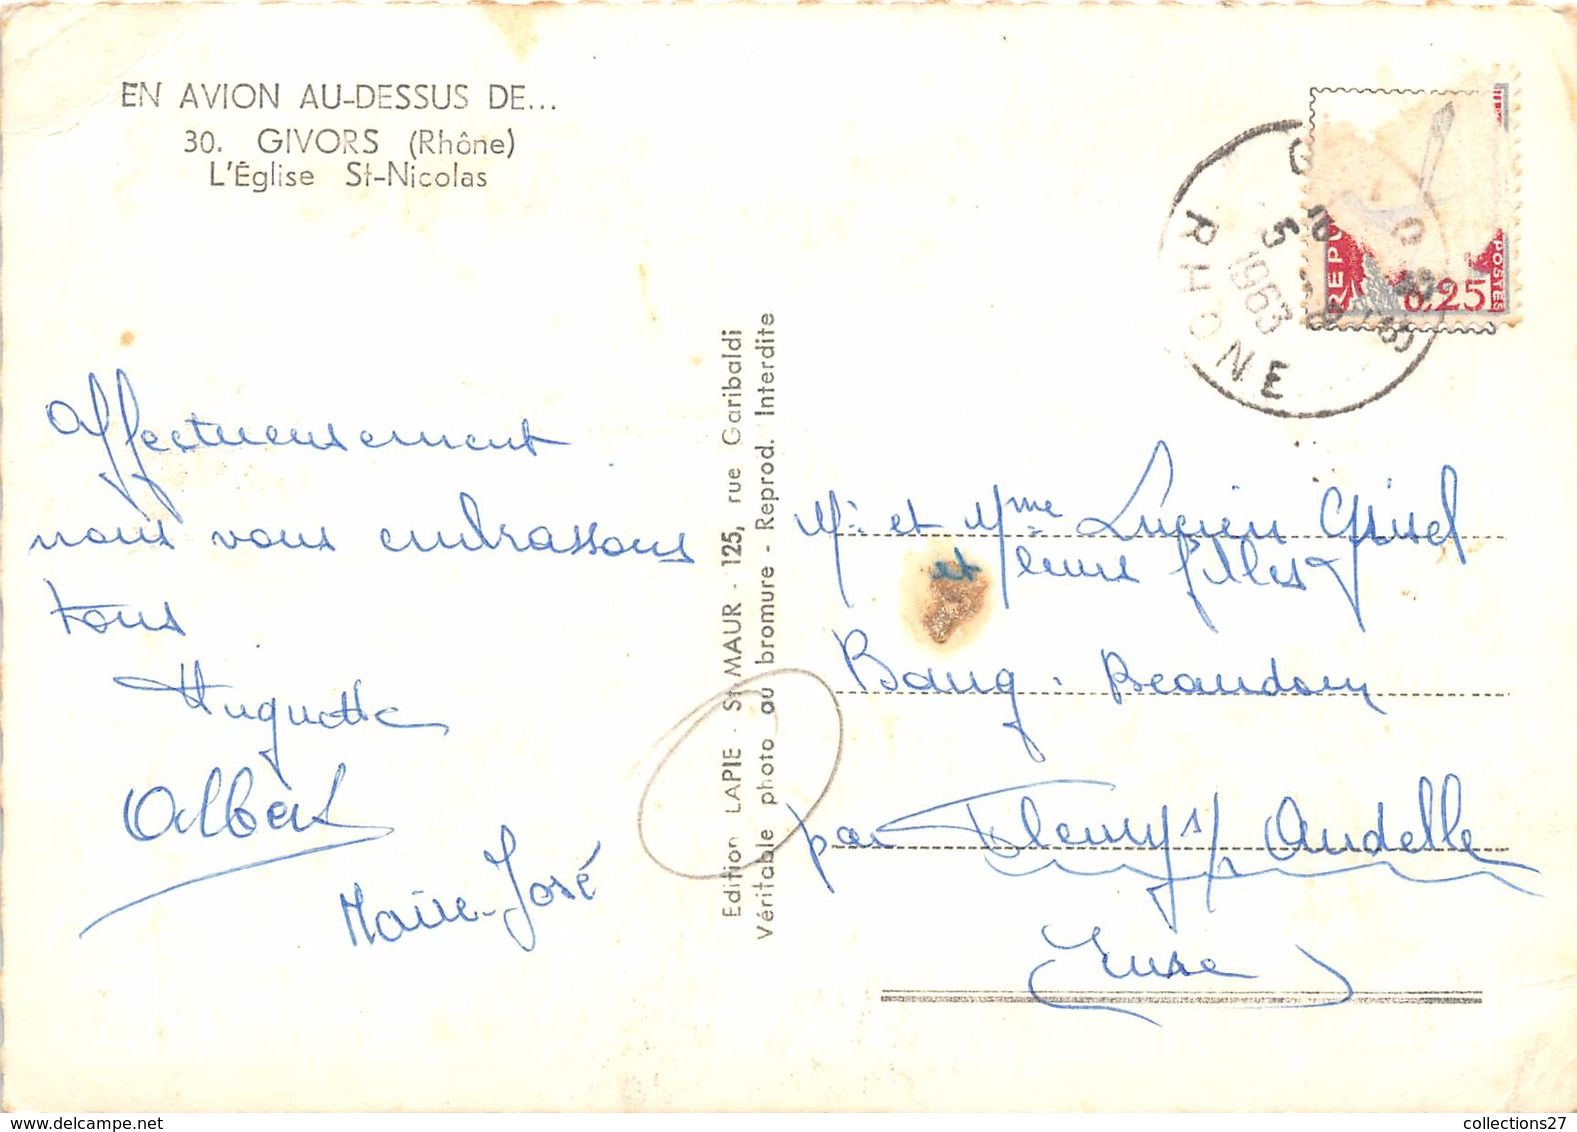 EN AVION AU-DESSUS DE...
30. GIVORS (Rhône)
L'Église St-Nicolas
Affectueusement
nous vous embrassons
tous
Huguette
Albert
Marie-José
Edition LAPIE - St-MAUR - 125, rue Garibaldi
Véritable photo au bromure - Reprod. Interdite
RHONE
5
1963
REPU
POSTES
0,25
Mr et Mme Lucien
et leurs filles
par Fleury s/ Andelle
Eure
collections27